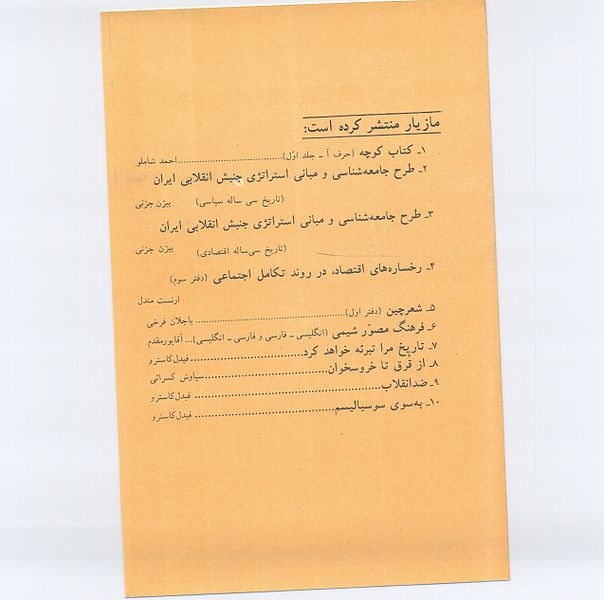 مازیار منتشر کرده است:
۱ـ کتاب کوچه (حرف آ ـ جلد اوّل)......................................احمد شاملو
۲ـ طرح جامعه‌شناسی و مبانی استراتژی جنبش انقلابی ایران
(تاریخ سی ساله سیاسی) بیژن جزنی
۳ـ طرح جامعه‌شناسی و مبانی استراتژی جنبش انقلابی ایران
(تاریخ سی‌ساله اقتصادی) بیژن جزنی
۴ـ رخساره‌های اقتصاد، در روند تکامل اجتماعی (دفتر سوم)
ارنست مندل
۵ـ شعرچین (دفتر اول)...................................................باجلان فرخی
۶ـ فرهنگ مصوّر شیمی (انگلیسی ـ فارسی و فارسی ـ انگلیسی)...آقاپورمقدم
۷ـ تاریخ مرا تبرئه خواهد کرد.....................................فیدل‌کاسترو
۸ـ از قرق تا خروسخوان.........................................سیاوش کسرائی
۹ـ ضدانقلاب......................................................فیدل‌کاسترو
۱۰ـ به‌سوی سوسیالیسم..........................................فیدل‌کاسترو